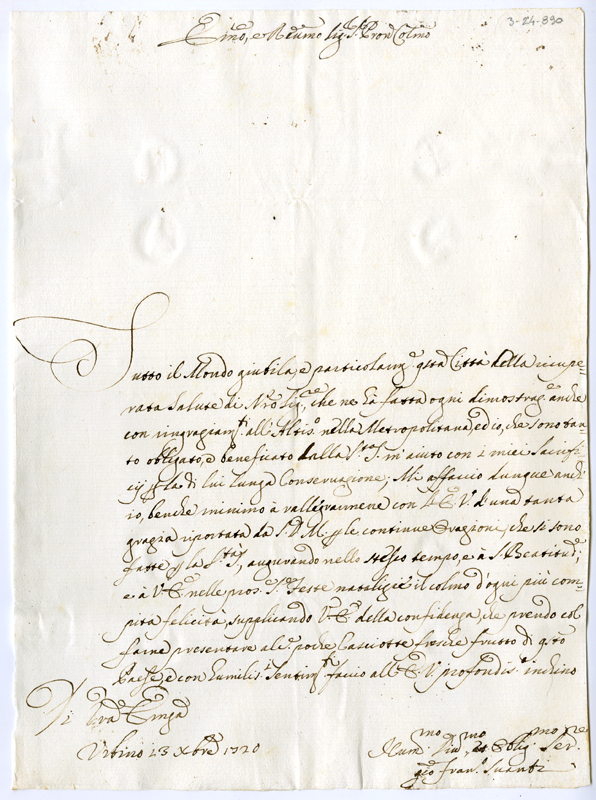 3-24-890
Emo, e Rdmo Sig.r Pron Colmo
Tutto il Mondo giubila, e particolarm.e q.sta Città della recupe-
rata Salute di Nro Sig.re, che ne hà fatta ogni dimostraz.e anche
con ringraziam.ti all'Altis.o nella Metropolitana, ed io, che sono tan-
to obligato, e beneficato dalla S.tà S. m'aiuto con i miei Sacrifi-
cij p la di lui lunga Conservazione; Mi affaccio dunque anch'
io, benche minimo à rallegrarmene con l'E. V. d'una tanta
grazia riportata da S. D. M. p le continue Orazioni, che si sono
fatte p la S.tà S., augurando nello stesso tempo, e à S. Beatitud.e,
e à V. E. nelle pros.e S.e Feste natalizie il colmo d'ogni più com-
pita felicità, supplicando V. E. della confidenza, che prendo col
farne presentare alc.e poche Casciotte fresche frutto di q.sto
Paese, e con humilis.i Sentim.ti faccio all'E. V. profondis.o inchino
Di Vra Emza
Urbino 23 Xbre 1720
Hum.mo Div.mo et Oblig.mo Ser.re
Fran.o